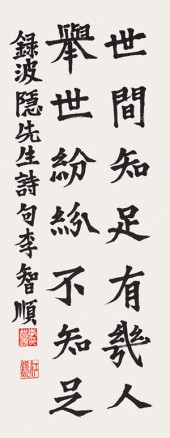 世間知足有幾人
舉世紛紛不知足
録波隱先生詩句李智順